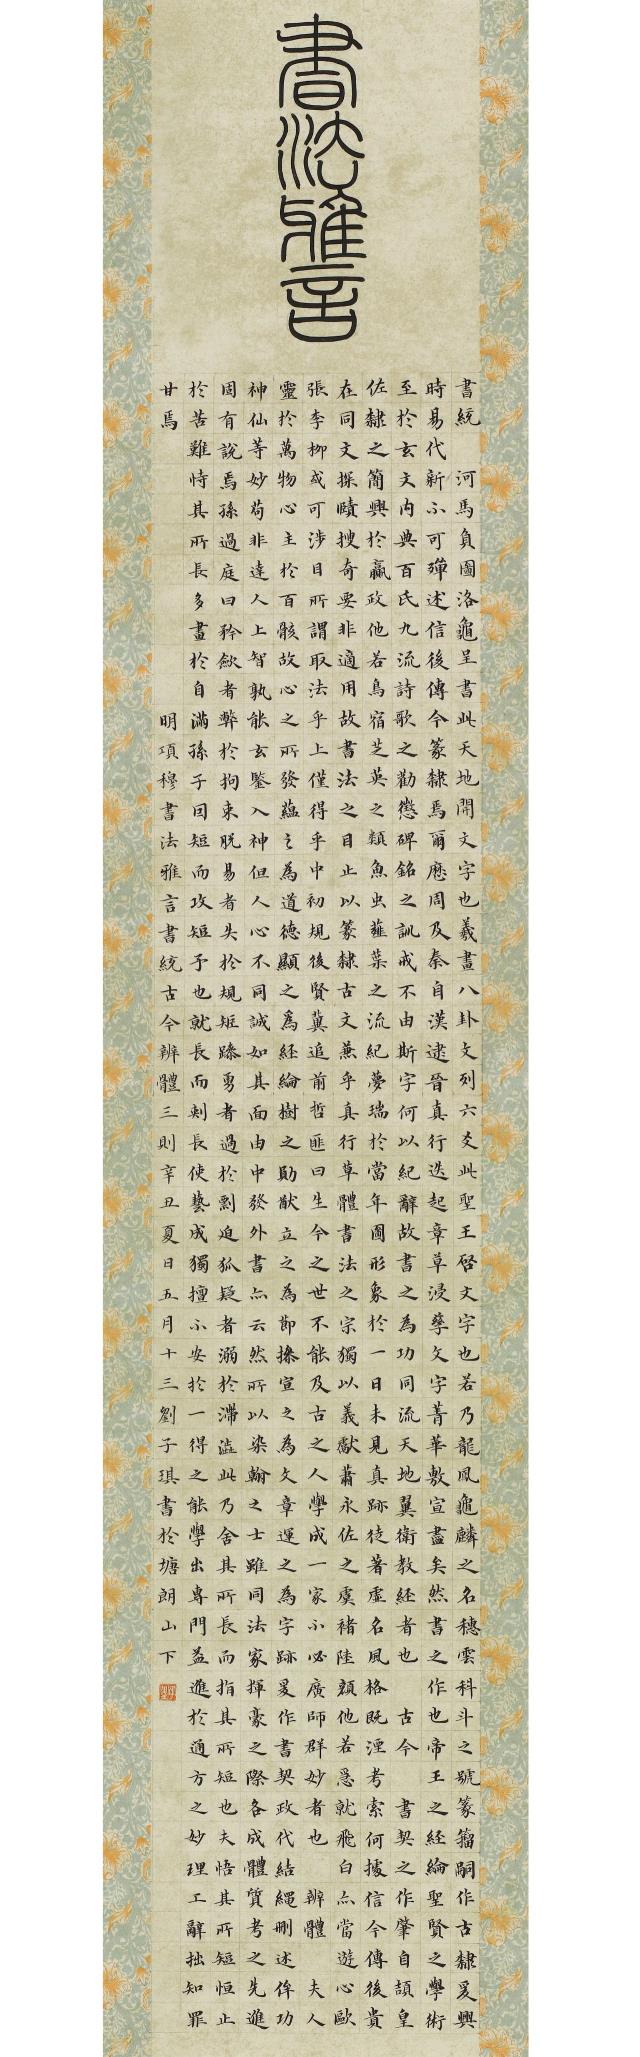 書法雅言
書統　河馬負圖洛龜呈書此天地開文字也羲畫八卦文列六爻此聖王啓文字也若乃龍鳳龜麟之名穗雲科斗之號篆籀嗣作古隸爰興
時易代新不可殫述信後傳今篆隸焉爾歷周及秦自漢逮晉真行迭起章草浸孳文字菁華敷宣盡矣然書之作也帝王之經綸聖賢之學術
至於玄文內典百氏九流詩歌之勸懲碑銘之訓戒不由斯字何以紀辭故書之為功同流天地翼衛教經者也　古今　書契之作肇自頡皇
佐隸之簡興於嬴政他若鳥宿芝英之類魚虫薤葉之流紀夢瑞於當年圖形象於一日未見真跡徒著虛名風格既湮考索何據信今傳後貴
在同文探賾搜奇要非適用故書法之目止以篆隸古文兼乎真行草體書法之宗獨以羲獻蕭永佐之虞褚陸顏他若急就飛白亦當遊心歐
張李柳或可涉目所謂取法乎上僅得乎中初規後賢冀追前哲匪曰生今之世不能及古之人學成一家不必廣師群妙者也　辨體　夫人
靈於萬物心主於百骸故心之所發蘊之為道德顯之為經綸樹之勛猷立之為節操宣之為文章運之為字跡爰作書契政代結繩刪述侔功
神仙等妙苟非達人上智孰能玄鑒入神但人心不同誠如其面由中發外書亦云然所以染翰之士雖同法家揮毫之際各成體質考之先進
固有說焉孫過庭曰矜斂者弊於拘束脫易者失於規矩躁勇者過於剽迫狐疑者溺於滯澁此乃舍其所長而指其所短也夫悟其所短恒止
於苦難恃其所長多畫於自滿孫子因短而攻短予也就長而刺長使藝成獨擅不安於一得之能學出專門益進於通方之妙理工辭拙知罪
甘焉
明項穆書法雅言書統古今辨體三則辛丑夏日五月十三劉子琪書於塘朗山下